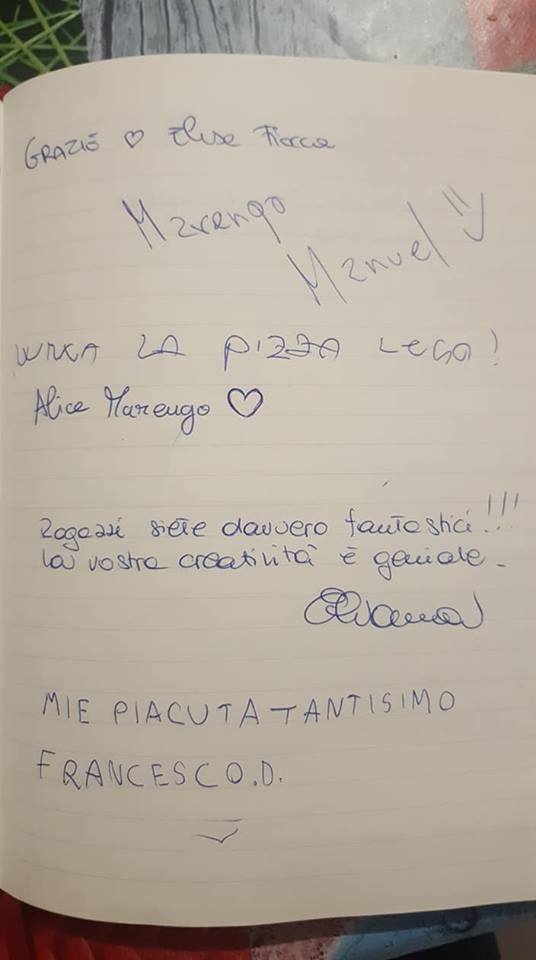 GRAZIE ♡ Elisa Fiocca
Marengo
Manuel
LA PIZZA LEGO!
Alice Marengo ♡
Ragazzi siete davvero fantastici!!!
la vostra creatività è geniale.
MIE PIACUTA TANTISIMO
FRANCESCO.D.